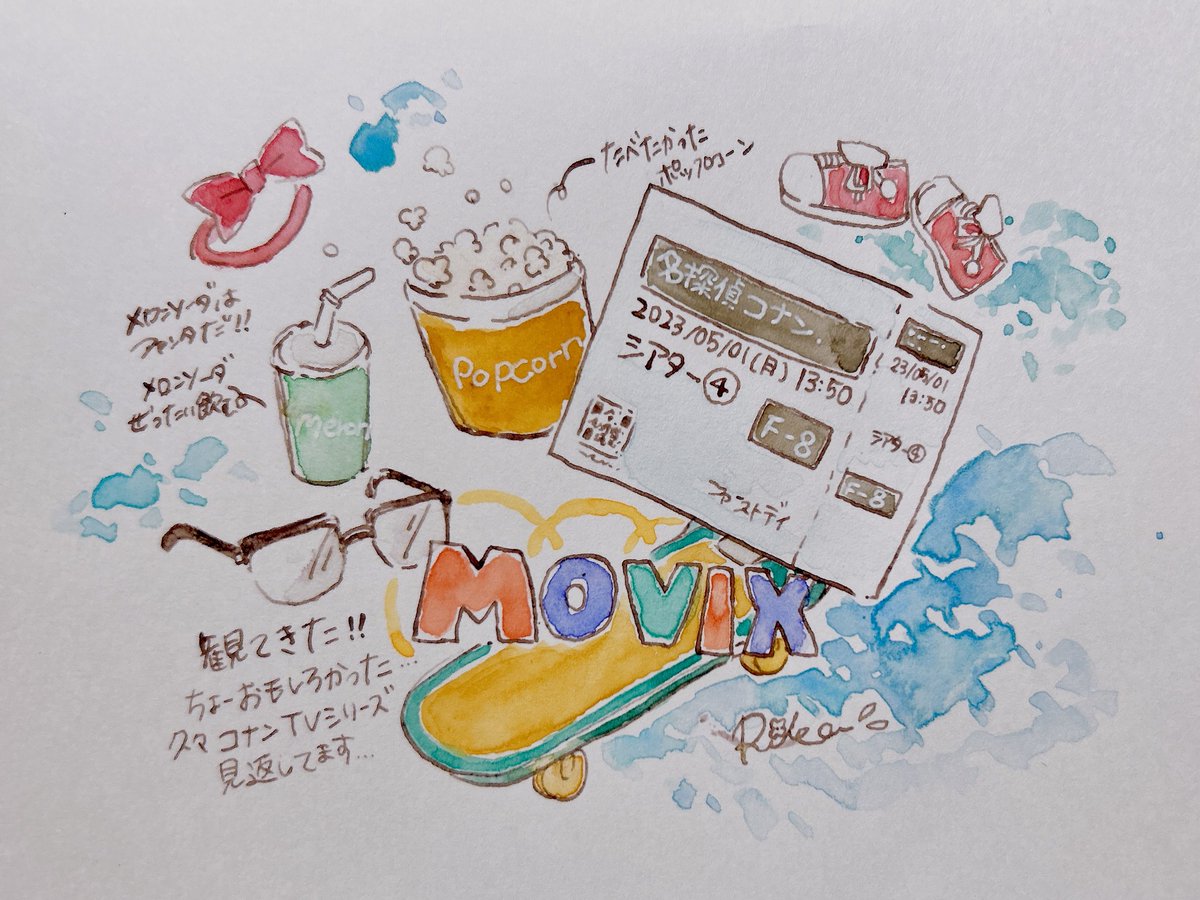 たべたかった
ポップコーン
メロンソーダは
ファンタだ!!
メロンソーダ
ぜったい飲む
Melon
Popcorn
名探偵コナン
2023/05/01(月) 13:50
シアター④
F-8
ファーストディ
23/05/01
13:50
シアター④
F-8
MOVIX
観てきた!!
ちょーおもしろかった...
久々 コナンTVシリーズ
見返してます...